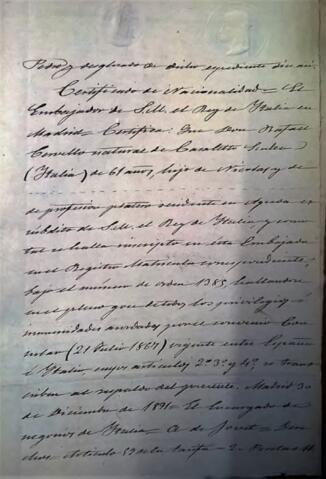 Pedro y desglosado de dicho expediente dice así
Certificado de Nacionalidad = El
Embajador de S.M. el Rey de Italia en
Madrid = Certifica: Que Don Rafael
Cervello natural de Casaletto
(Italia) de 61 años, hijo de Nicolas y de
de profesion platero residente en Aguda es
subdito de S.M. el Rey de Italia y como
tal se halla inscripto en esta Embajada
en el Registro Matricula correspondiente,
bajo el número de orden 1385, hallandose
en el pleno goce de todos los privilegios é
inmunidades acordados por el convenio Con
sular (21 Julio 1867) vigente entre España
é Italia cuyos articulos 2º 3º y 4º se trans
criben al respaldo del presente. Madrid 30
de Diciembre de 1891 = El Encargado de
negocios de Italia = A de = Dere
chos. Articulo 53 de la tarifa = 2